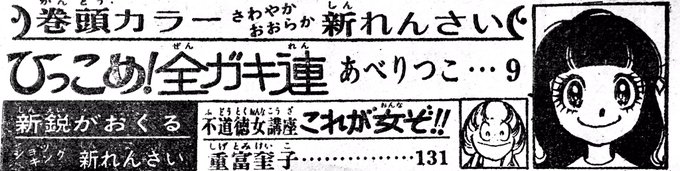 巻頭カラー さわやか おおらか 新れんさい
ひっこめ!全ガキ連 あべりつこ…9
新鋭がおくる
ショッキング 新れんさい
不道徳女講座 これが女ぞ!!
重富奎子……………131